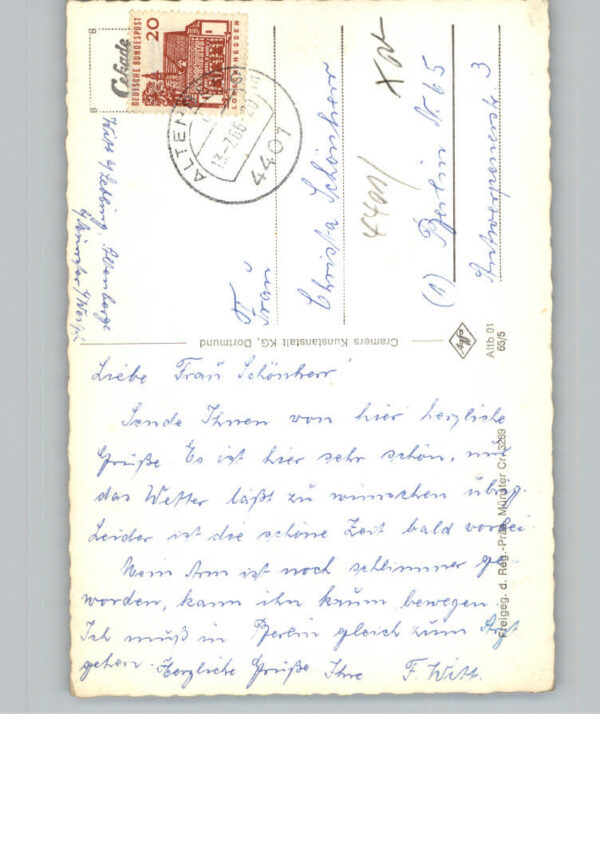 Liebe Frau Schönherr!
Sende Ihnen von hier herzliche
Grüße. Es ist hier sehr schön, nur
das Wetter läßt zu wünschen übrig.
Leider ist die schöne Zeit bald vorbei.
Mein Arm ist noch schlimmer ge
worden, kann ihn kaum bewegen.
Ich muß in Berlin gleich zum Arzt
gehen. Herzliche Grüße Ihre F. Witt.
Cekade
DEUTSCHE BUNDESPOST
20
LORSCH HESSEN
ALTENB
13.-7.66.-20
4401
Witt b/ Altenberge
b/Münster /Westf.
Frau
Christa Schönherr
4401/
(1) Berlin N. 65
Antwerpenerstr. 3
Cramers Kunstanstalt KG, Dortmund
Altb 01
65/5
Freigeg. d. Reg.-Präs. Münster Cr. 3289